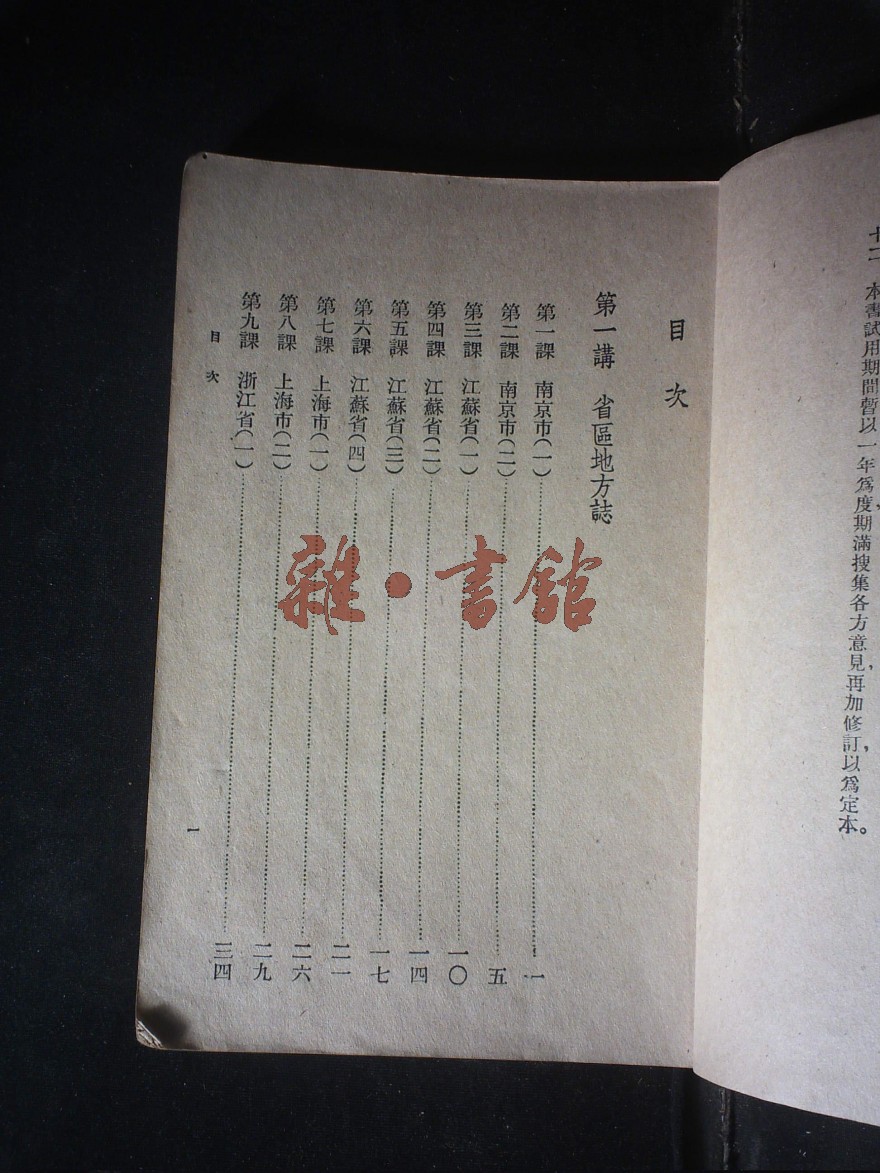 十二 本書試用期間暫以一年爲度，期滿搜集各方意見，再加修訂，以爲定本。
目次
第一講 省區地方誌
第一課 南京市(一)………一
第二課 南京市(二)………五
第三課 江蘇省(一)………一〇
第四課 江蘇省(二)………一四
第五課 江蘇省(三)………一七
第六課 江蘇省(四)………二一
第七課 上海市(一)………二六
第八課 上海市(二)………二九
第九課 浙江省(一)………三四
目次 一
雜·書館